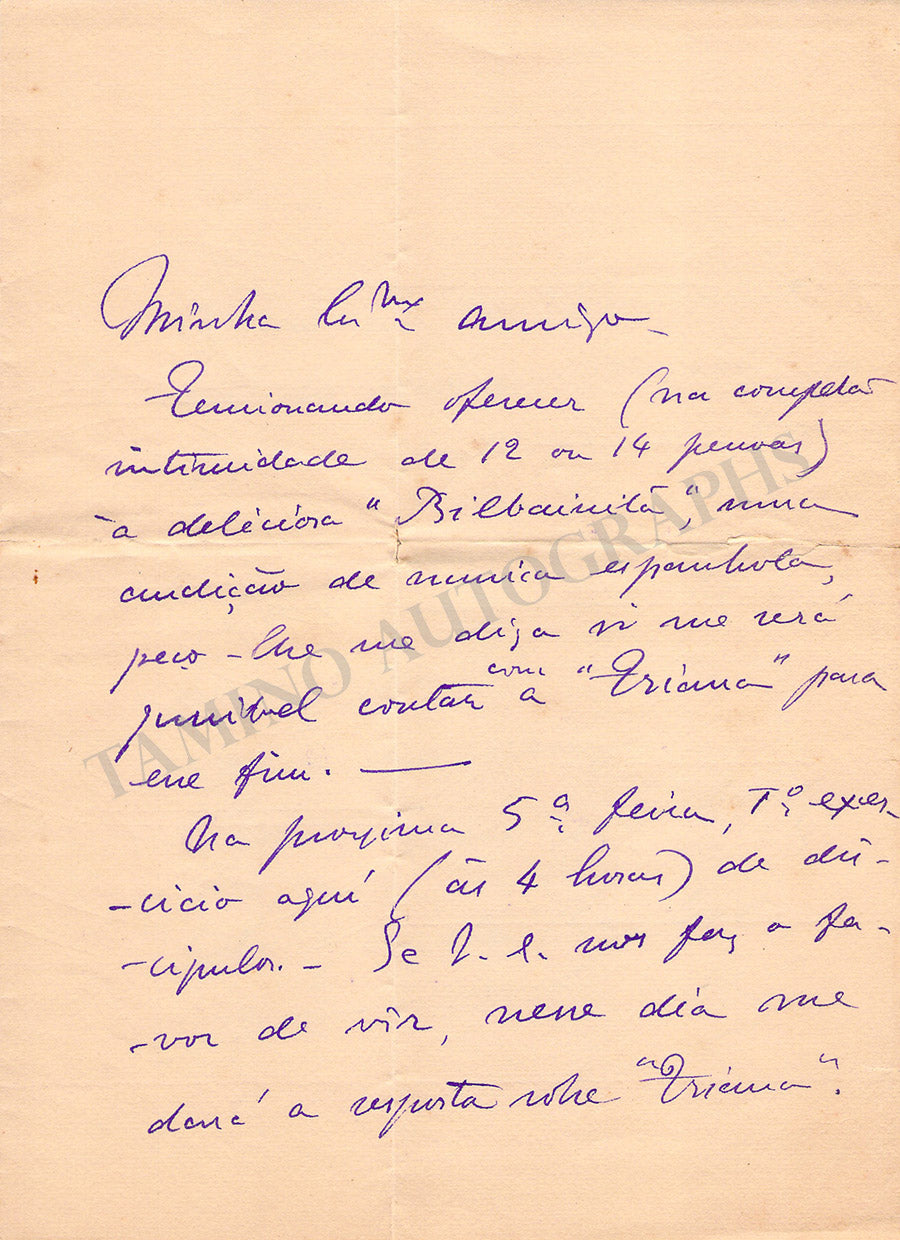 Minha Exma amiga
Tencionando oferecer (na completa
intimidade de 12 ou 14 pessoas)
à deliciosa "Bilbainita", uma
audição de musica espanhola,
peço-lhe me diga si me será
possivel contar com a "Triana" para
esse fim. —
Na proxima 5ª feira, 1º exer-
-cicio aquí (às 4 horas) de dis-
-cipulos. - Se V. E. nos faz o fa-
-vor de vir, nesse día me
dará a resposta sobre "Triana".
TAMINO AUTOGRAPHS